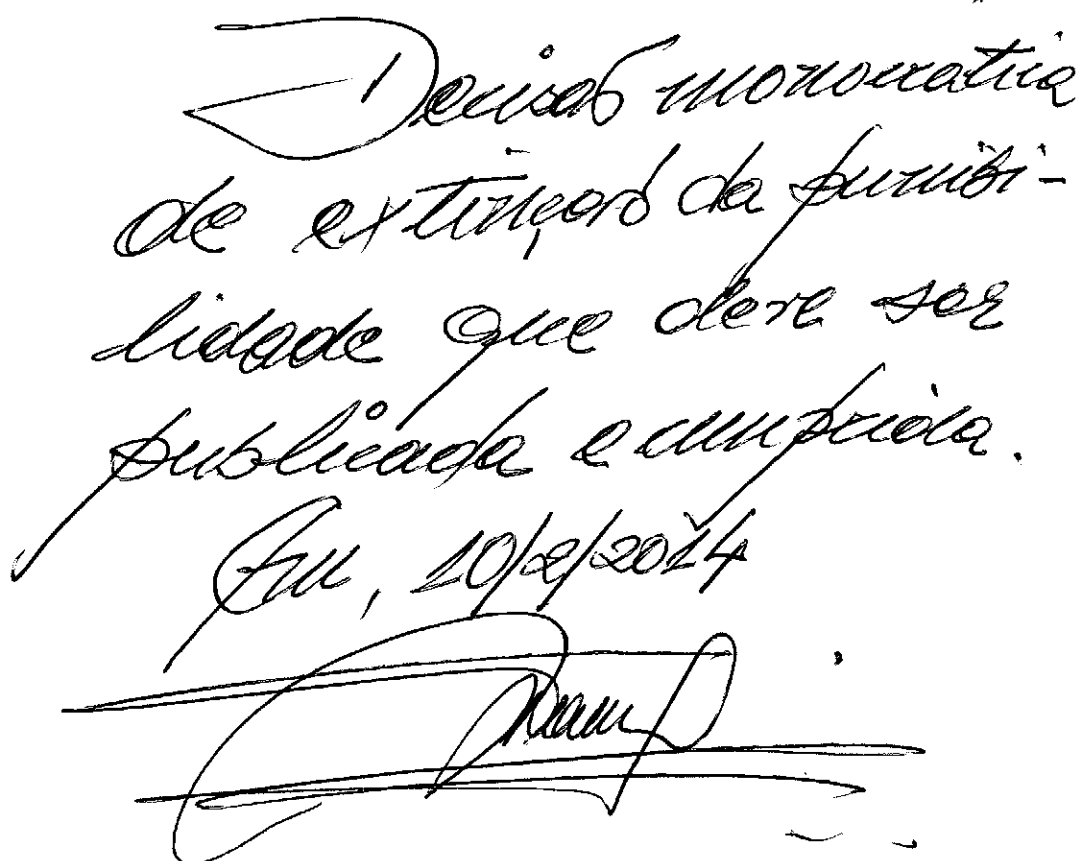 Decisão monocratica
de extinção da punibi-
lidade que deve ser
publicada e cumprida.
Em, 10/2/2014